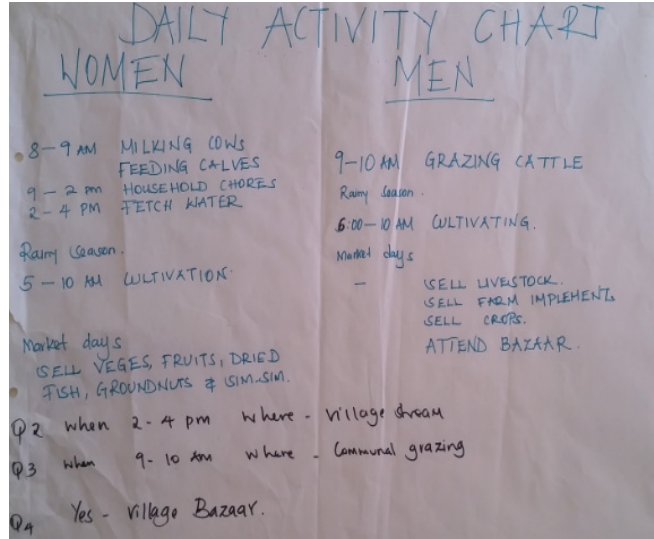 DAILY ACTIVITY CHART
WOMEN
8-9 AM MILKING COWS
FEEDING CALVES
9 - 2 pm HOUSEHOLD CHORES
2 - 4 PM FETCH WATER
Rainy Season.
5 - 10 AM CULTIVATION.
Market days
SELL VEGES, FRUITS, DRIED
FISH, GROUNDNUTS & SIM-SIM.
MEN
9-10 AM GRAZING CATTLE
Rainy Season.
6:00-10 AM CULTIVATING.
Market days
- SELL LIVESTOCK.
SELL FARM IMPLEMENTS
SELL CROPS.
ATTEND BAZAAR.
Q2 when 2-4 pm Where - village stream
Q3 when 9-10 Am Where - Communal grazing
Q4 Yes - village Bazaar.